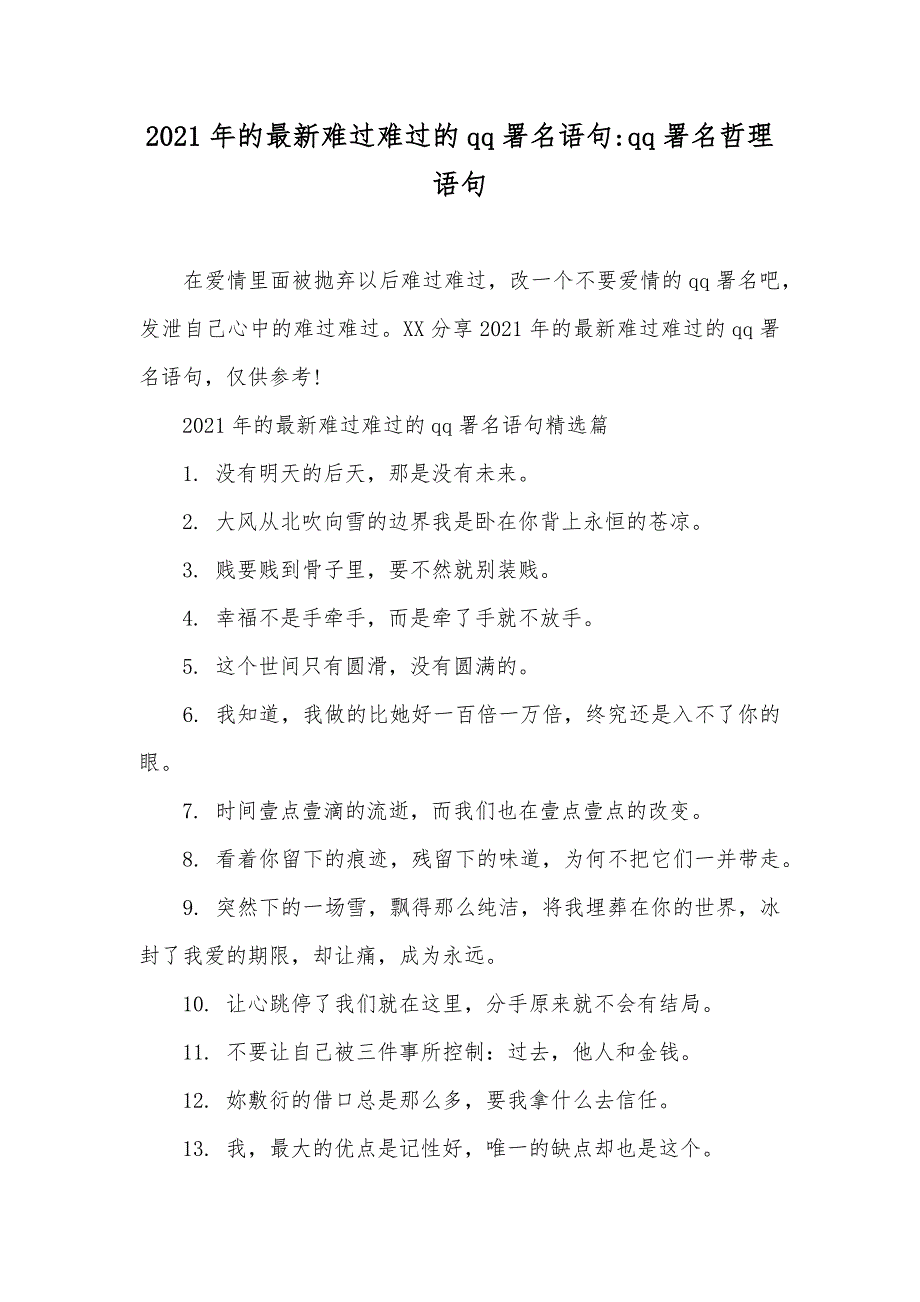 2021 年的最新难过难过的 qq 署名语句:qq 署名哲理
语句
在爱情里面被抛弃以后难过难过，改一个不要爱情的 qq 署名吧，
发泄自己心中的难过难过。XX 分享 2021 年的最新难过难过的 qq 署
名语句，仅供参考!
2021 年的最新难过难过的 qq 署名语句精选篇
1. 没有明天的后天，那是没有未来。
2. 大风从北吹向雪的边界我是卧在你背上永恒的苍凉。
3. 贱要贱到骨子里，要不然就别装贱。
4. 幸福不是手牵手，而是牵了手就不放手。
5. 这个世间只有圆滑，没有圆满的。
6. 我知道，我做的比她好一百倍一万倍，终究还是入不了你的
眼。
7. 时间壹点壹滴的流逝，而我们也在壹点壹点的改变。
8. 看着你留下的痕迹，残留下的味道，为何不把它们一并带走。
9. 突然下的一场雪，飘得那么纯洁，将我埋葬在你的世界，冰
封了我爱的期限，却让痛，成为永远。
10. 让心跳停了我们就在这里，分手原来就不会有结局。
11. 不要让自己被三件事所控制：过去，他人和金钱。
12. 妳敷衍的借口总是那么多，要我拿什么去信任。
13. 我，最大的优点是记性好，唯一的缺点却也是这个。